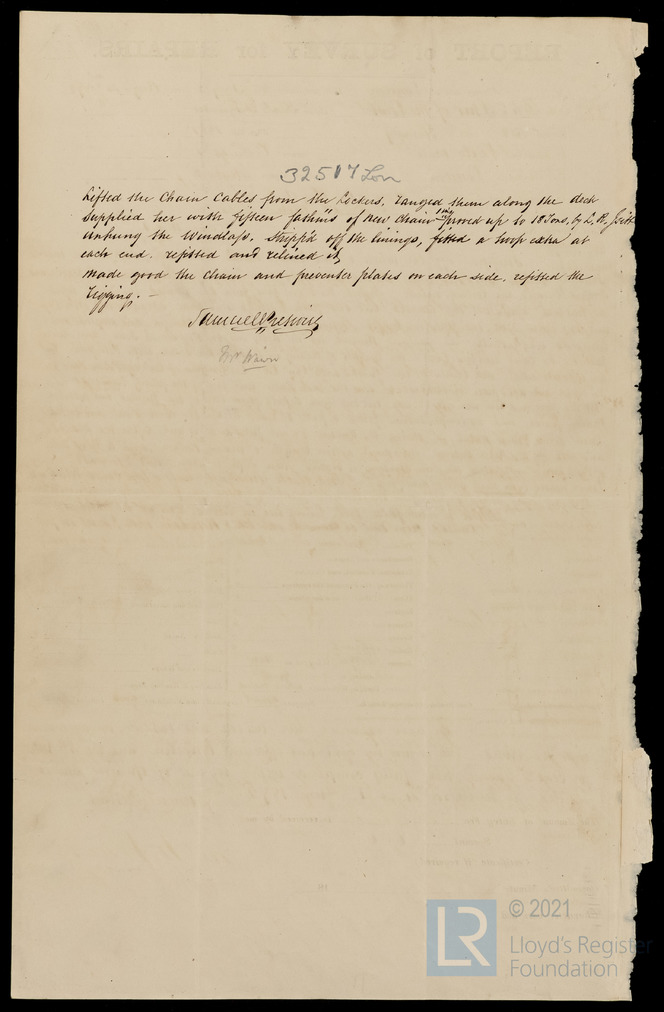 32517 Lon
Lifted the Chain Cables from the Lockers, ranged them along the deck
Supplied her with fifteen fathms of new chain proved up to 18 Tons, by L. R.
Unhung the Windlass. Stripp'd off the linings, fitted a hoop extra at
each end. refitted and relined it,
Made good the Chain and preventer plates on each side. refitted the
rigging. —
Samuel
Mr
© 2021
LR
Lloyd's Register
Foundation